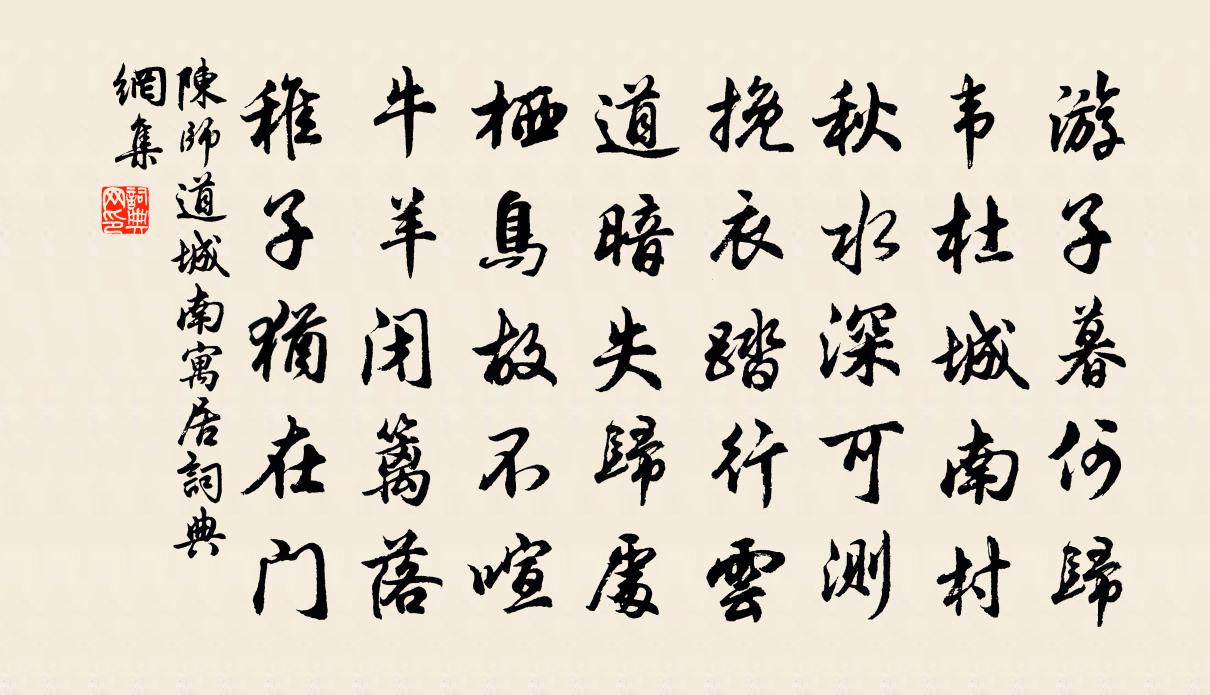 游子暮何歸
韦杜城南村
秋水深可测
挽衣踏行雲
道暗失歸處
栖鳥故不喧
牛羊闭篱落
稚子猶在门
陳師道城南寓居詞典
網集
詞典
网印